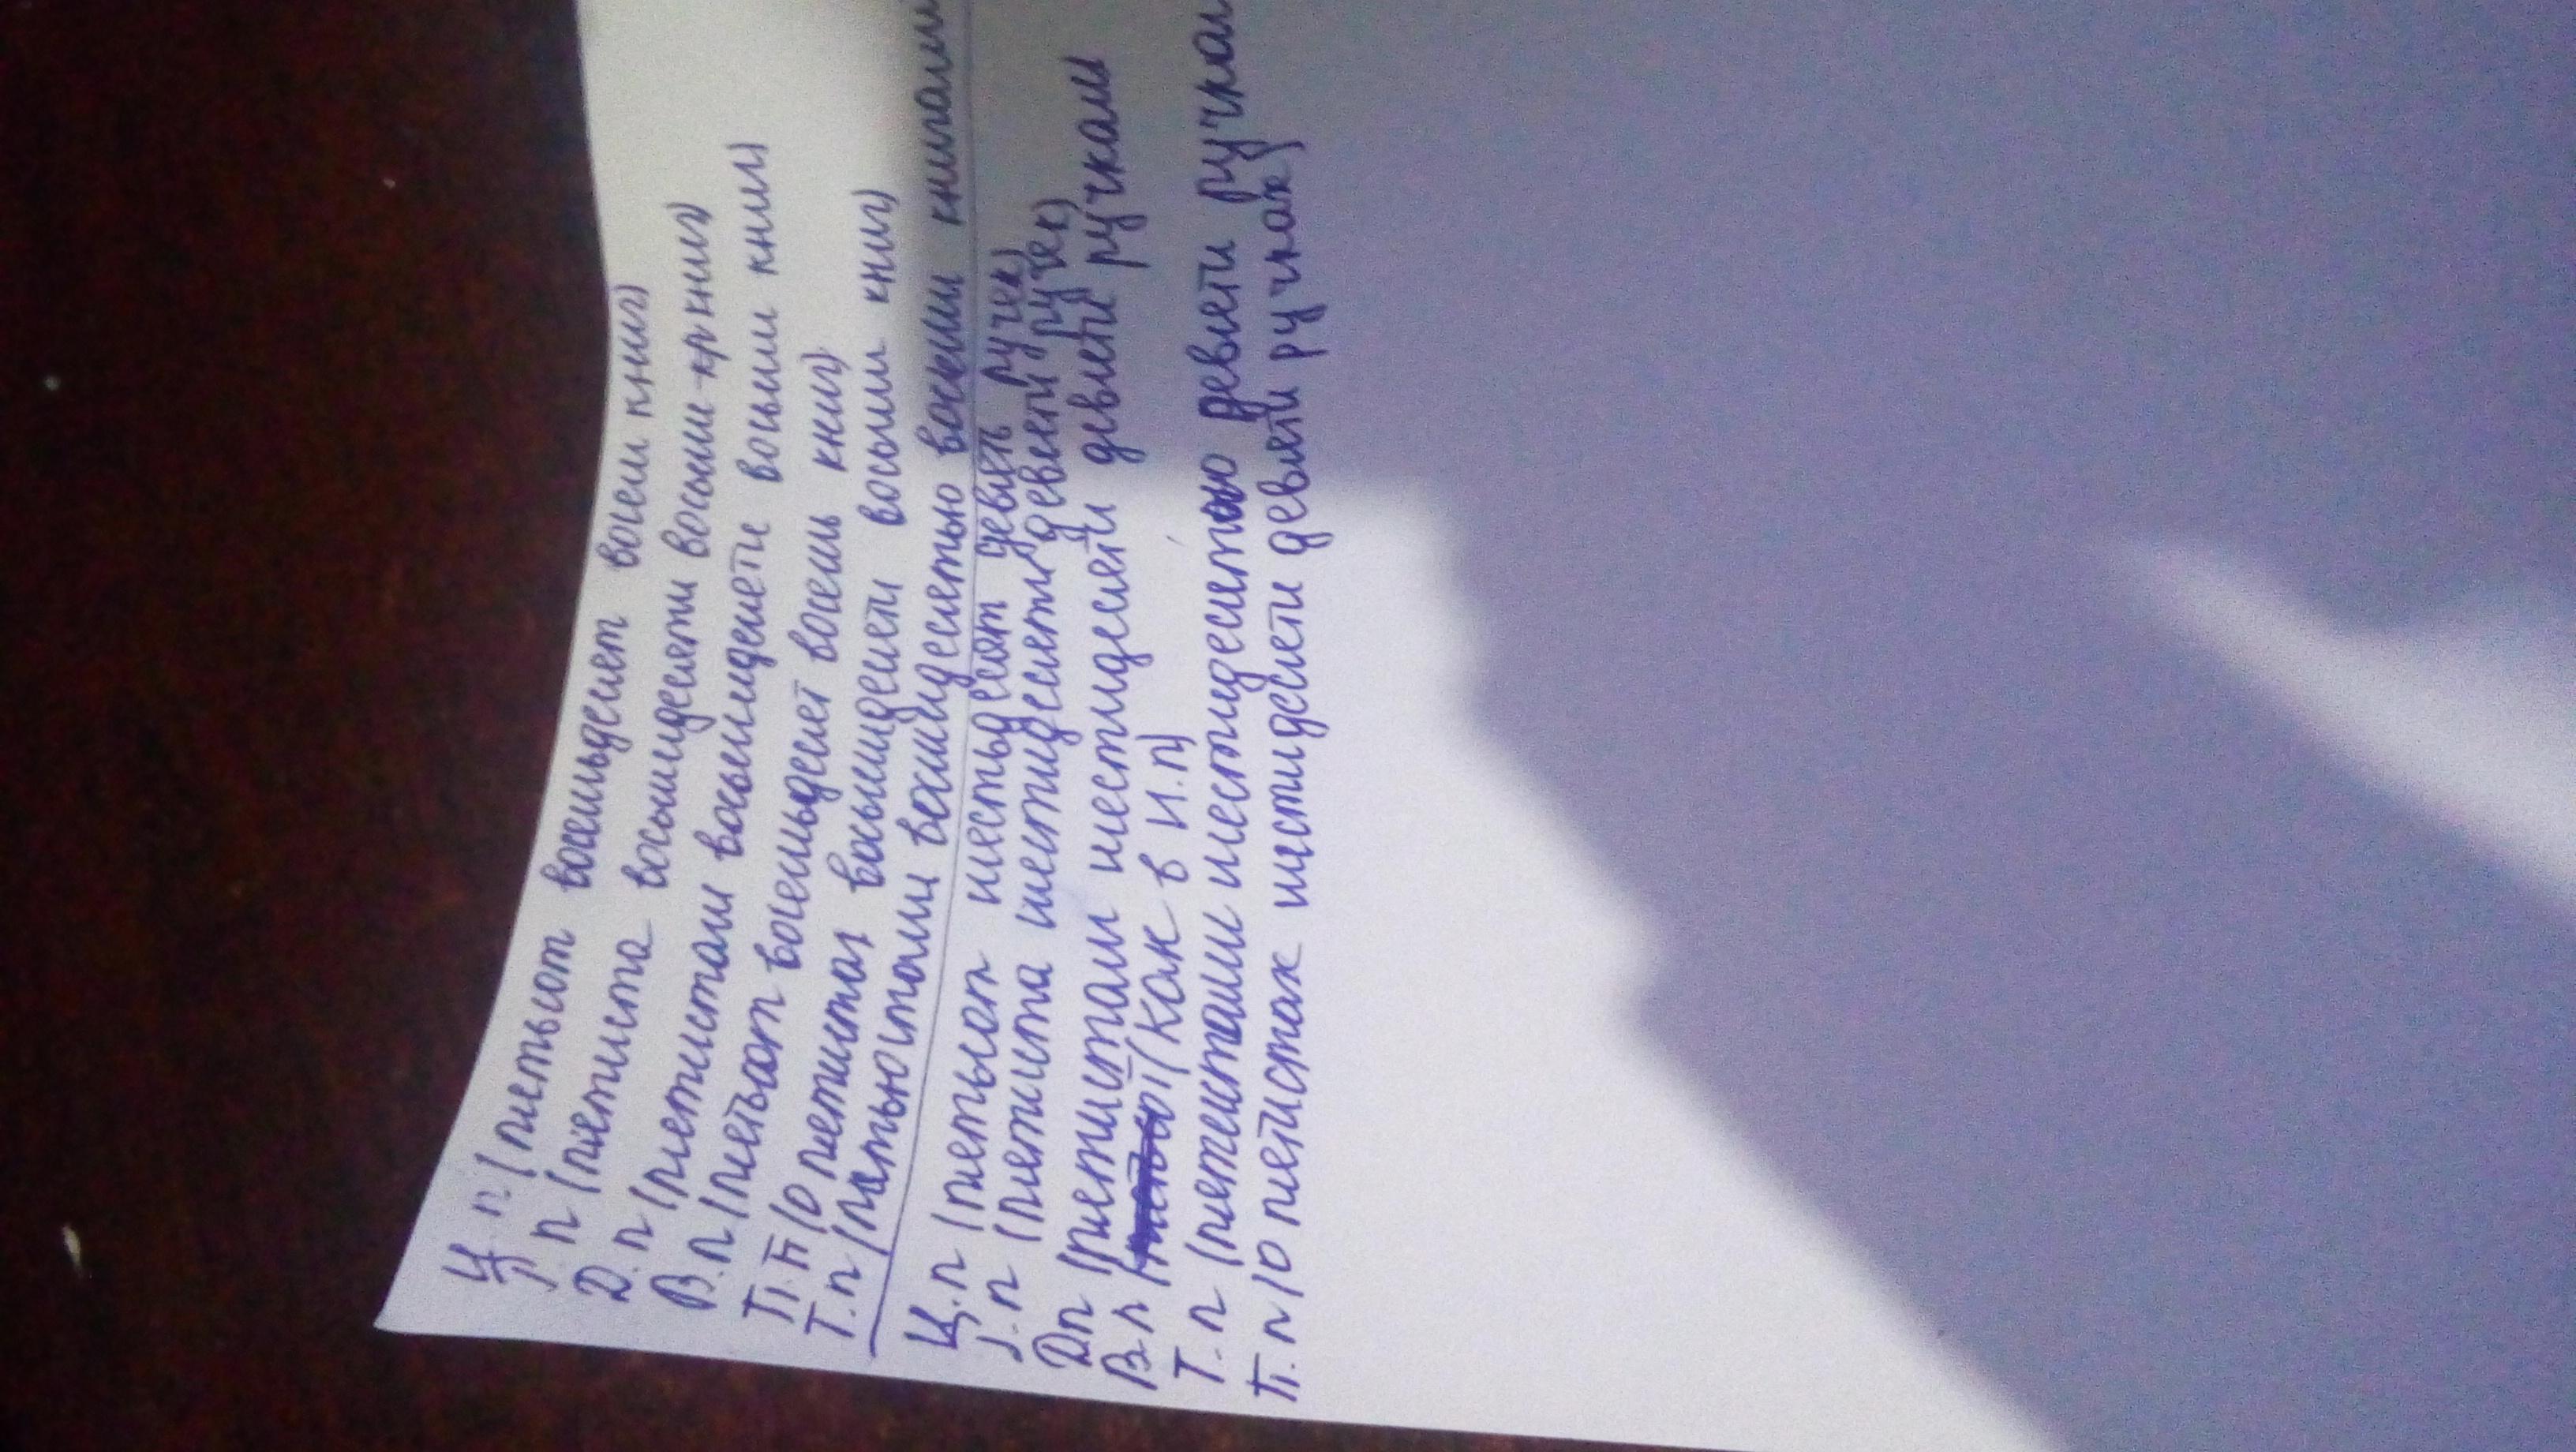 И.п (пятьсот восемьдесят восем книг)
Р.п (пятиста восьмидесяти восьми кр книг)
Д.п (пятистам восьмидесяти восьми книг)
В.п (пятьсот восемьдесят восемь книг)
П.п (о пятистах восьмидесяти восьми книг)
Т.п (пятьюстами восмидесятью восьми книгами
И.п (пятьсот шестьдесят девять ручек)
Р.п (пятиста шестидесяти девяти ручек)
Дп (пятистам шестидесяти девяти ручкам
В.п (как в И.п)
Т.п (пятистами шестидесятью девяти ручкам
П.п (о пятистах шестидесяти девяти ручках)